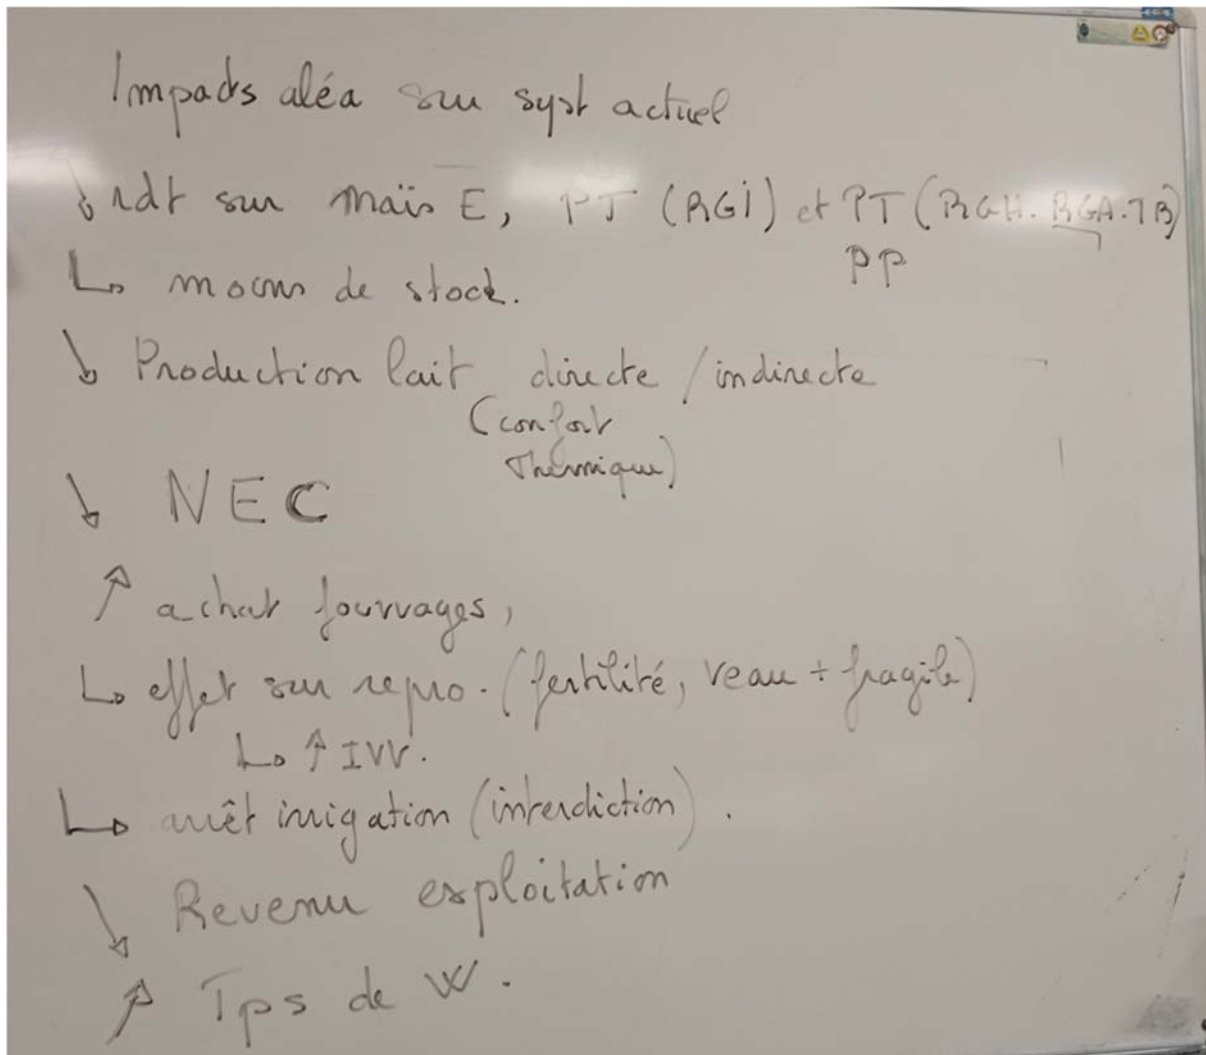 Impacts aléa sur syst actuel
↘ rdt sur maïs E, PT (RGI) et PT (RGH. RGA. TB)
PP
↳ moins de stock.
↘ Production lait directe / indirecte
(confort
Thermique)
↘ NEC
↗ achat fourrages,
↳ effet sur repro. (fertilité, veau + fragile)
↳ ↑ IVV.
↳ arrêt irrigation (interdiction).
↘ Revenu exploitation
↗ Tps de W.